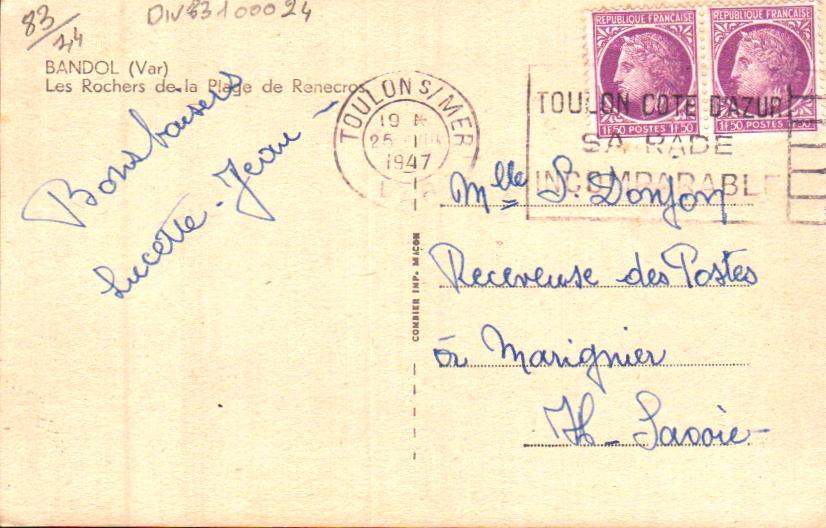 83/24
DIV83100024
BANDOL (Var)
Les Rochers de la Plage de Renecros
Bons baisers
Lucette - Jean
TOULON S/MER
19 H
25
1947
VAR
REPUBLIQUE FRANÇAISE
1F50 POSTES 1F50
REPUBLIQUE FRANÇAISE
1F50 POSTES 1F50
TOULON COTE D'AZUR
SA RADE
INCOMPARABLE
COMBIER IMP. MACON
Mlle S. Donjon
Receveuse des Postes
à Marignier
Hte Savoie